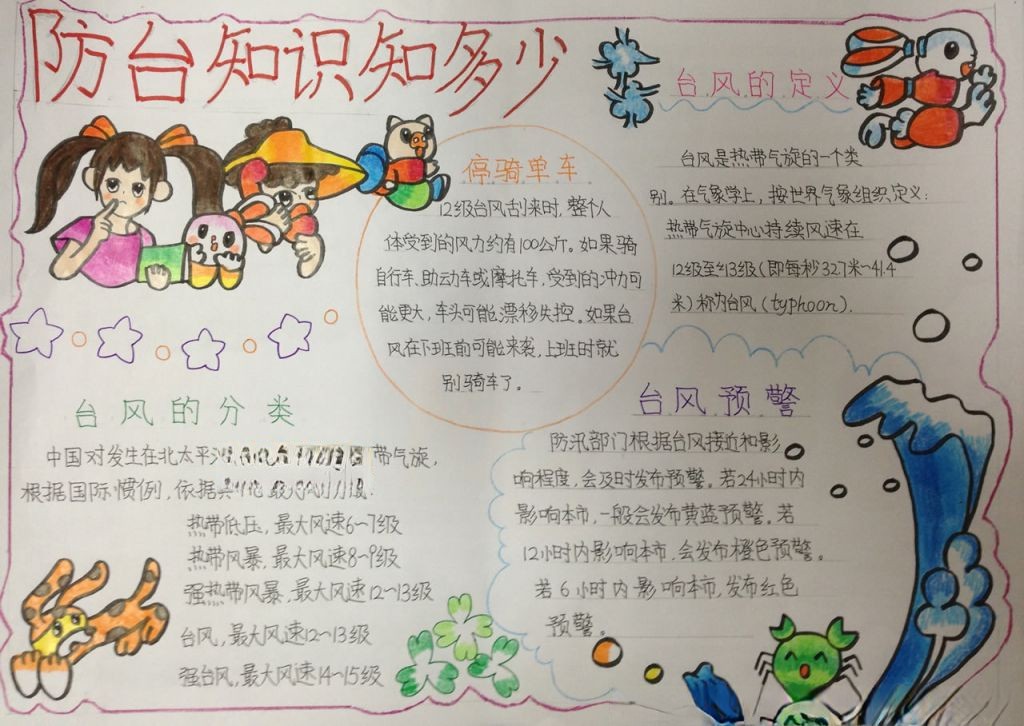 防台知识知多少
停骑单车
12级台风刮来时,整个人
体受到的风力约有100公斤。如果骑
自行车、助动车或摩托车,受到的冲力可
能更大,车头可能漂移失控。如果台
风在下班前可能来袭,上班时就
别骑车了。
台风的定义
台风是热带气旋的一个类
别。在气象学上,按世界气象组织定义:
热带气旋中心持续风速在
12级至13级(即每秒32.7米~41.4
米)称为台风(typhoon).
台风的分类
中国对发生在北太平 带气旋,
根据国际惯例,依据
热带低压,最大风速6~7级
热带风暴,最大风速8~9级
强热带风暴,最大风速12~13级
台风,最大风速12~13级
强台风,最大风速14~15级
台风预警
防汛部门根据台风接近和影
响程度,会及时发布预警。若24小时内
影响本市,一般会发布黄蓝预警。若
12小时内影响本市,会发布橙色预警。
若6小时内影响本市,发布红色
预警。